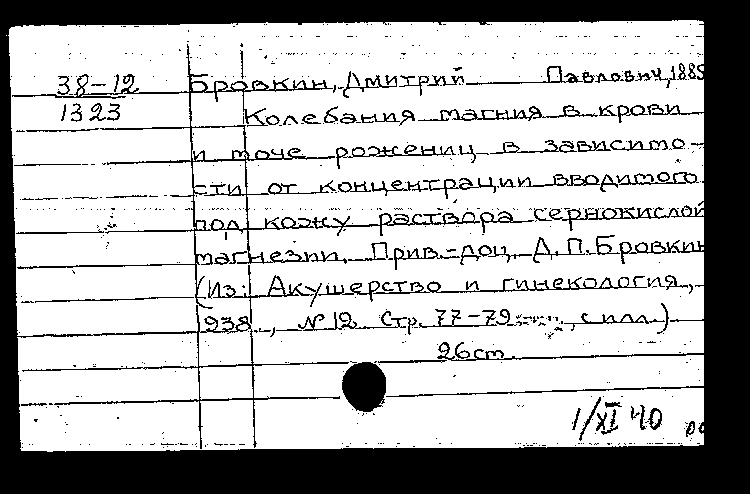 38-12
1323
Бровкин, Дмитрий Павлович, 1885
Колебания магния в крови
и моче рожениц в зависимо-
сти от концентрации вводимого
под кожу раствора сернокислой
магнезии. Прив.-доц. Д. П. Бровкин
(Из: Акушерство и гинекология,
1938., № 12 Стр. 77-79 , с илл.)
26 см.
1/XI 40